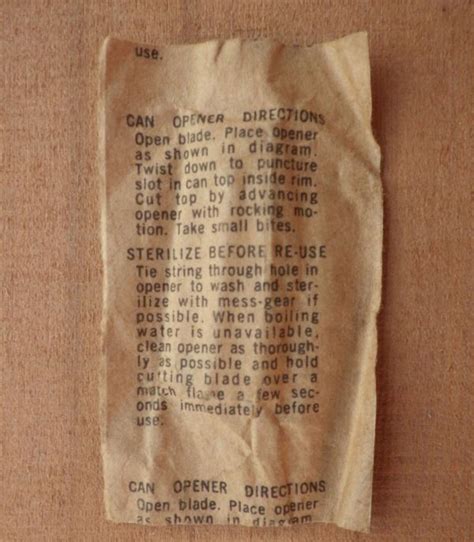 use.
CAN OPENER DIRECTIONS
Open blade. Place opener
as shown in diagram.
Twist down to puncture
slot in can top inside rim.
Cut top by advancing
opener with rocking mo-
tion. Take small bites.
STERILIZE BEFORE RE-USE
Tie string through hole in
opener to wash and ster-
ilize with mess-gear if
possible. When boiling
water is unavailable,
clean opener as thorough-
ly as possible and hold
cutting blade over a
match flame a few sec-
onds immediately before
use.
CAN OPENER DIRECTIONS
Open blade. Place opener
as shown in diagram